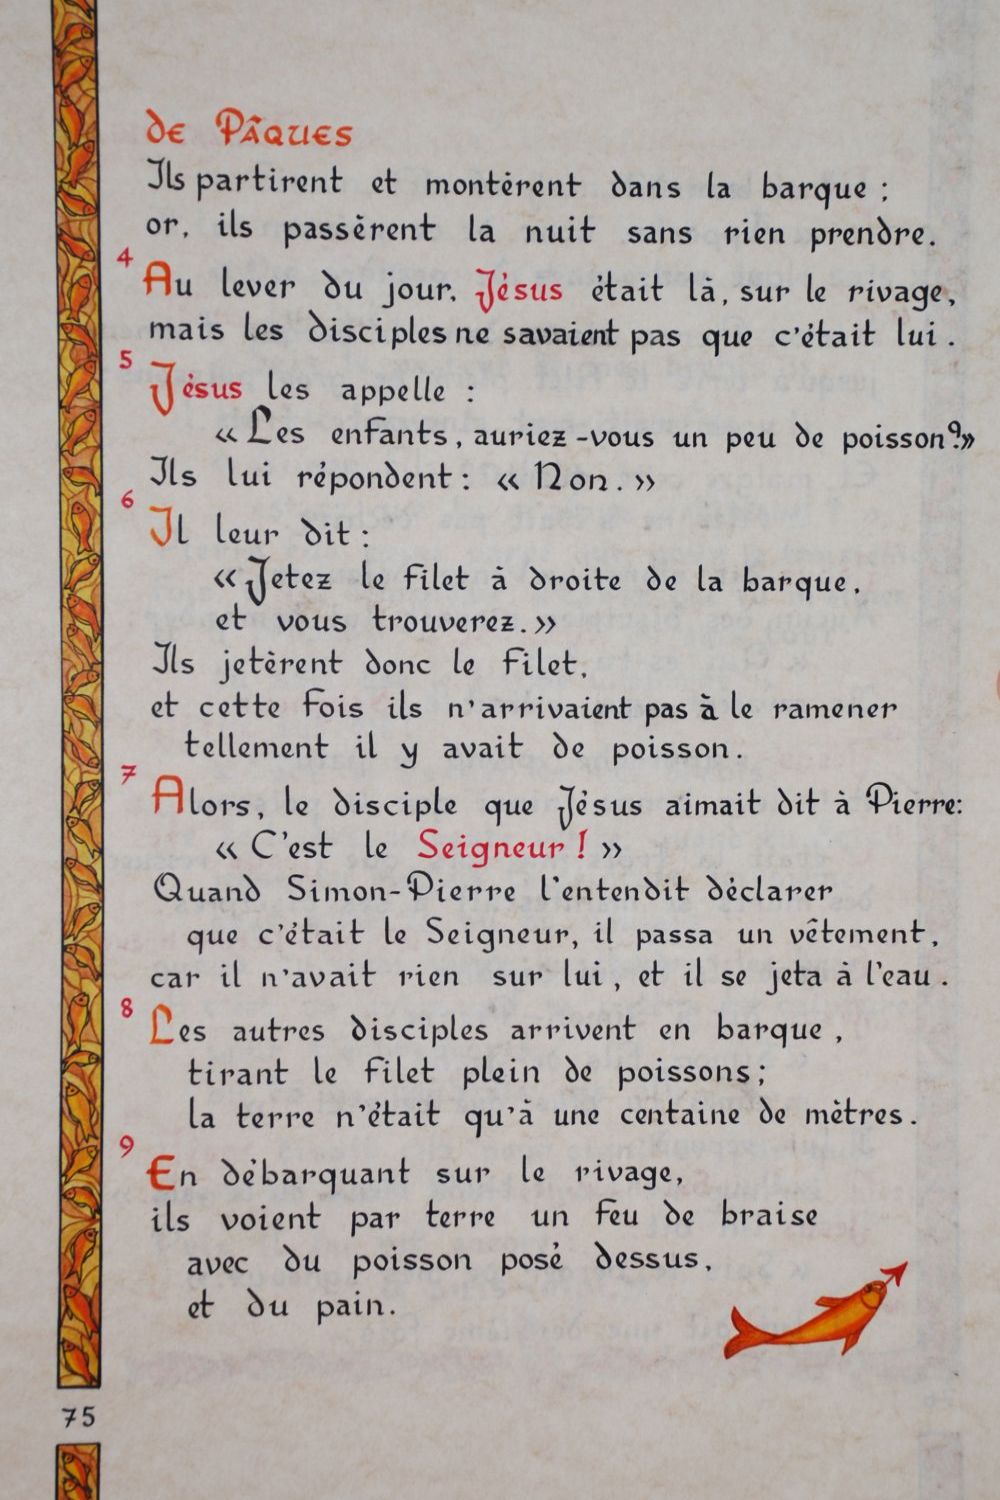 de Pâques
Ils partirent et montèrent dans la barque ;
or, ils passèrent la nuit sans rien prendre.
4
Au lever du jour, Jésus était là, sur le rivage,
mais les disciples ne savaient pas que c'était lui.
5
Jésus les appelle :
« Les enfants, auriez-vous un peu de poisson ? »
Ils lui répondent : « Non. »
6
Il leur dit :
« Jetez le filet à droite de la barque,
et vous trouverez. »
Ils jetèrent donc le filet,
et cette fois ils n'arrivaient pas à le ramener
tellement il y avait de poisson.
7
Alors, le disciple que Jésus aimait dit à Pierre:
« C'est le Seigneur ! »
Quand Simon-Pierre l'entendit déclarer
que c'était le Seigneur, il passa un vêtement,
car il n'avait rien sur lui, et il se jeta à l'eau.
8
Les autres disciples arrivent en barque,
tirant le filet plein de poissons;
la terre n'était qu'à une centaine de mètres.
9
En débarquant sur le rivage,
ils voient par terre un feu de braise
avec du poisson posé dessus,
et du pain.
75